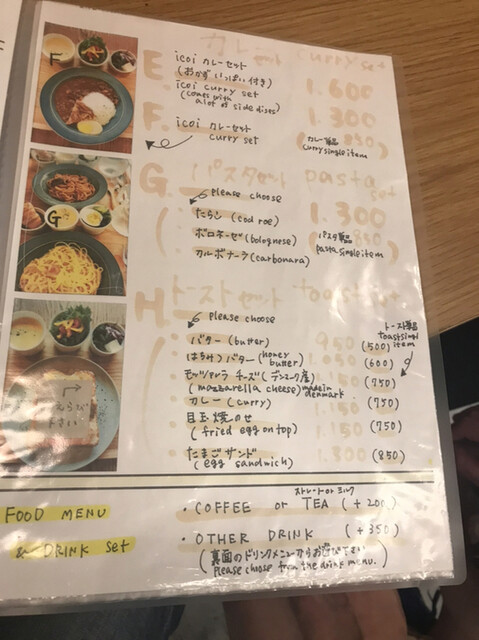 カレーセット curry set
E icoi カレーセット
(おかずいっぱい付き)
icoi curry set
(comes with
a lot of side dises)
1.600
F. icoi カレーセット
curry set
1.300
(850)
カレー単品
curry single item
F
G. パスタセット pasta set
please choose
1.300
たらし (cod roe)
ボロネーゼ (bolognese)
カルボナーラ (carbonara)
パスタ単品
pasta single item
(800)
G
H. トーストセット toast set
please choose
トースト単品
toast singl
item
バター (butter) 950 (500)
はちみつバター (honey butter) 1.050 (600)
モッツァレラチーズ (デンマーク産) 1.150 (750)
(mazzarella cheese) made in denmark
カレー (curry) 1.150 (750)
目玉焼のせ 1.150 (750)
(fried egg on top)
たまごサンド 1.300 (850)
(egg sandwich)
えらび
下さい
FOOD MENU
& DRINK set
ストレート or ミルク
・COFFEE or TEA (+200)
・OTHER DRINK (+350)
(裏面のドリンクメニューからお選び下さい
please choose from the drink menu.)